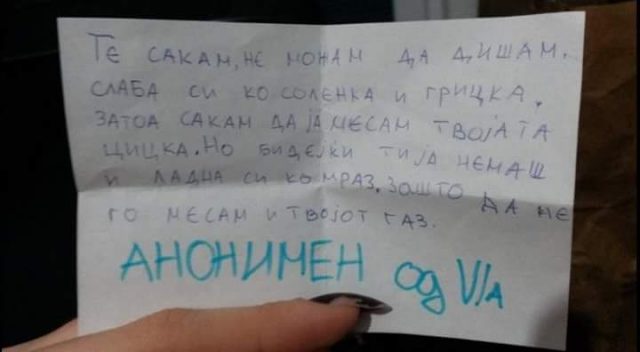 ТЕ САКАМ, НЕ МОЖАМ ДА ДИШАМ.
СЛАБА СИ КО СОЛЕНКА И ГРИЦКА.
ЗАТОА САКАМ ДА ЈА МЕСАМ ТВОЈАТА
ЦИЦКА. НО БИДЕЈЌИ ТИ ЈА НЕМАШ
И ЛАДНА СИ КО МРАЗ. ЗОШТО ДА НЕ
ГО МЕСАМ И ТВОЈОТ ГАЗ.
АНОНИМЕН од VI/A